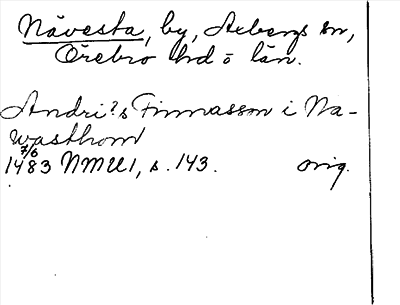 Nåvesta, by, Axbergs sn,
Örebro hd o län.
Andri?s Finnasson i Na-
wasthom
7/6
1483 NMU1, s. 143. orig.